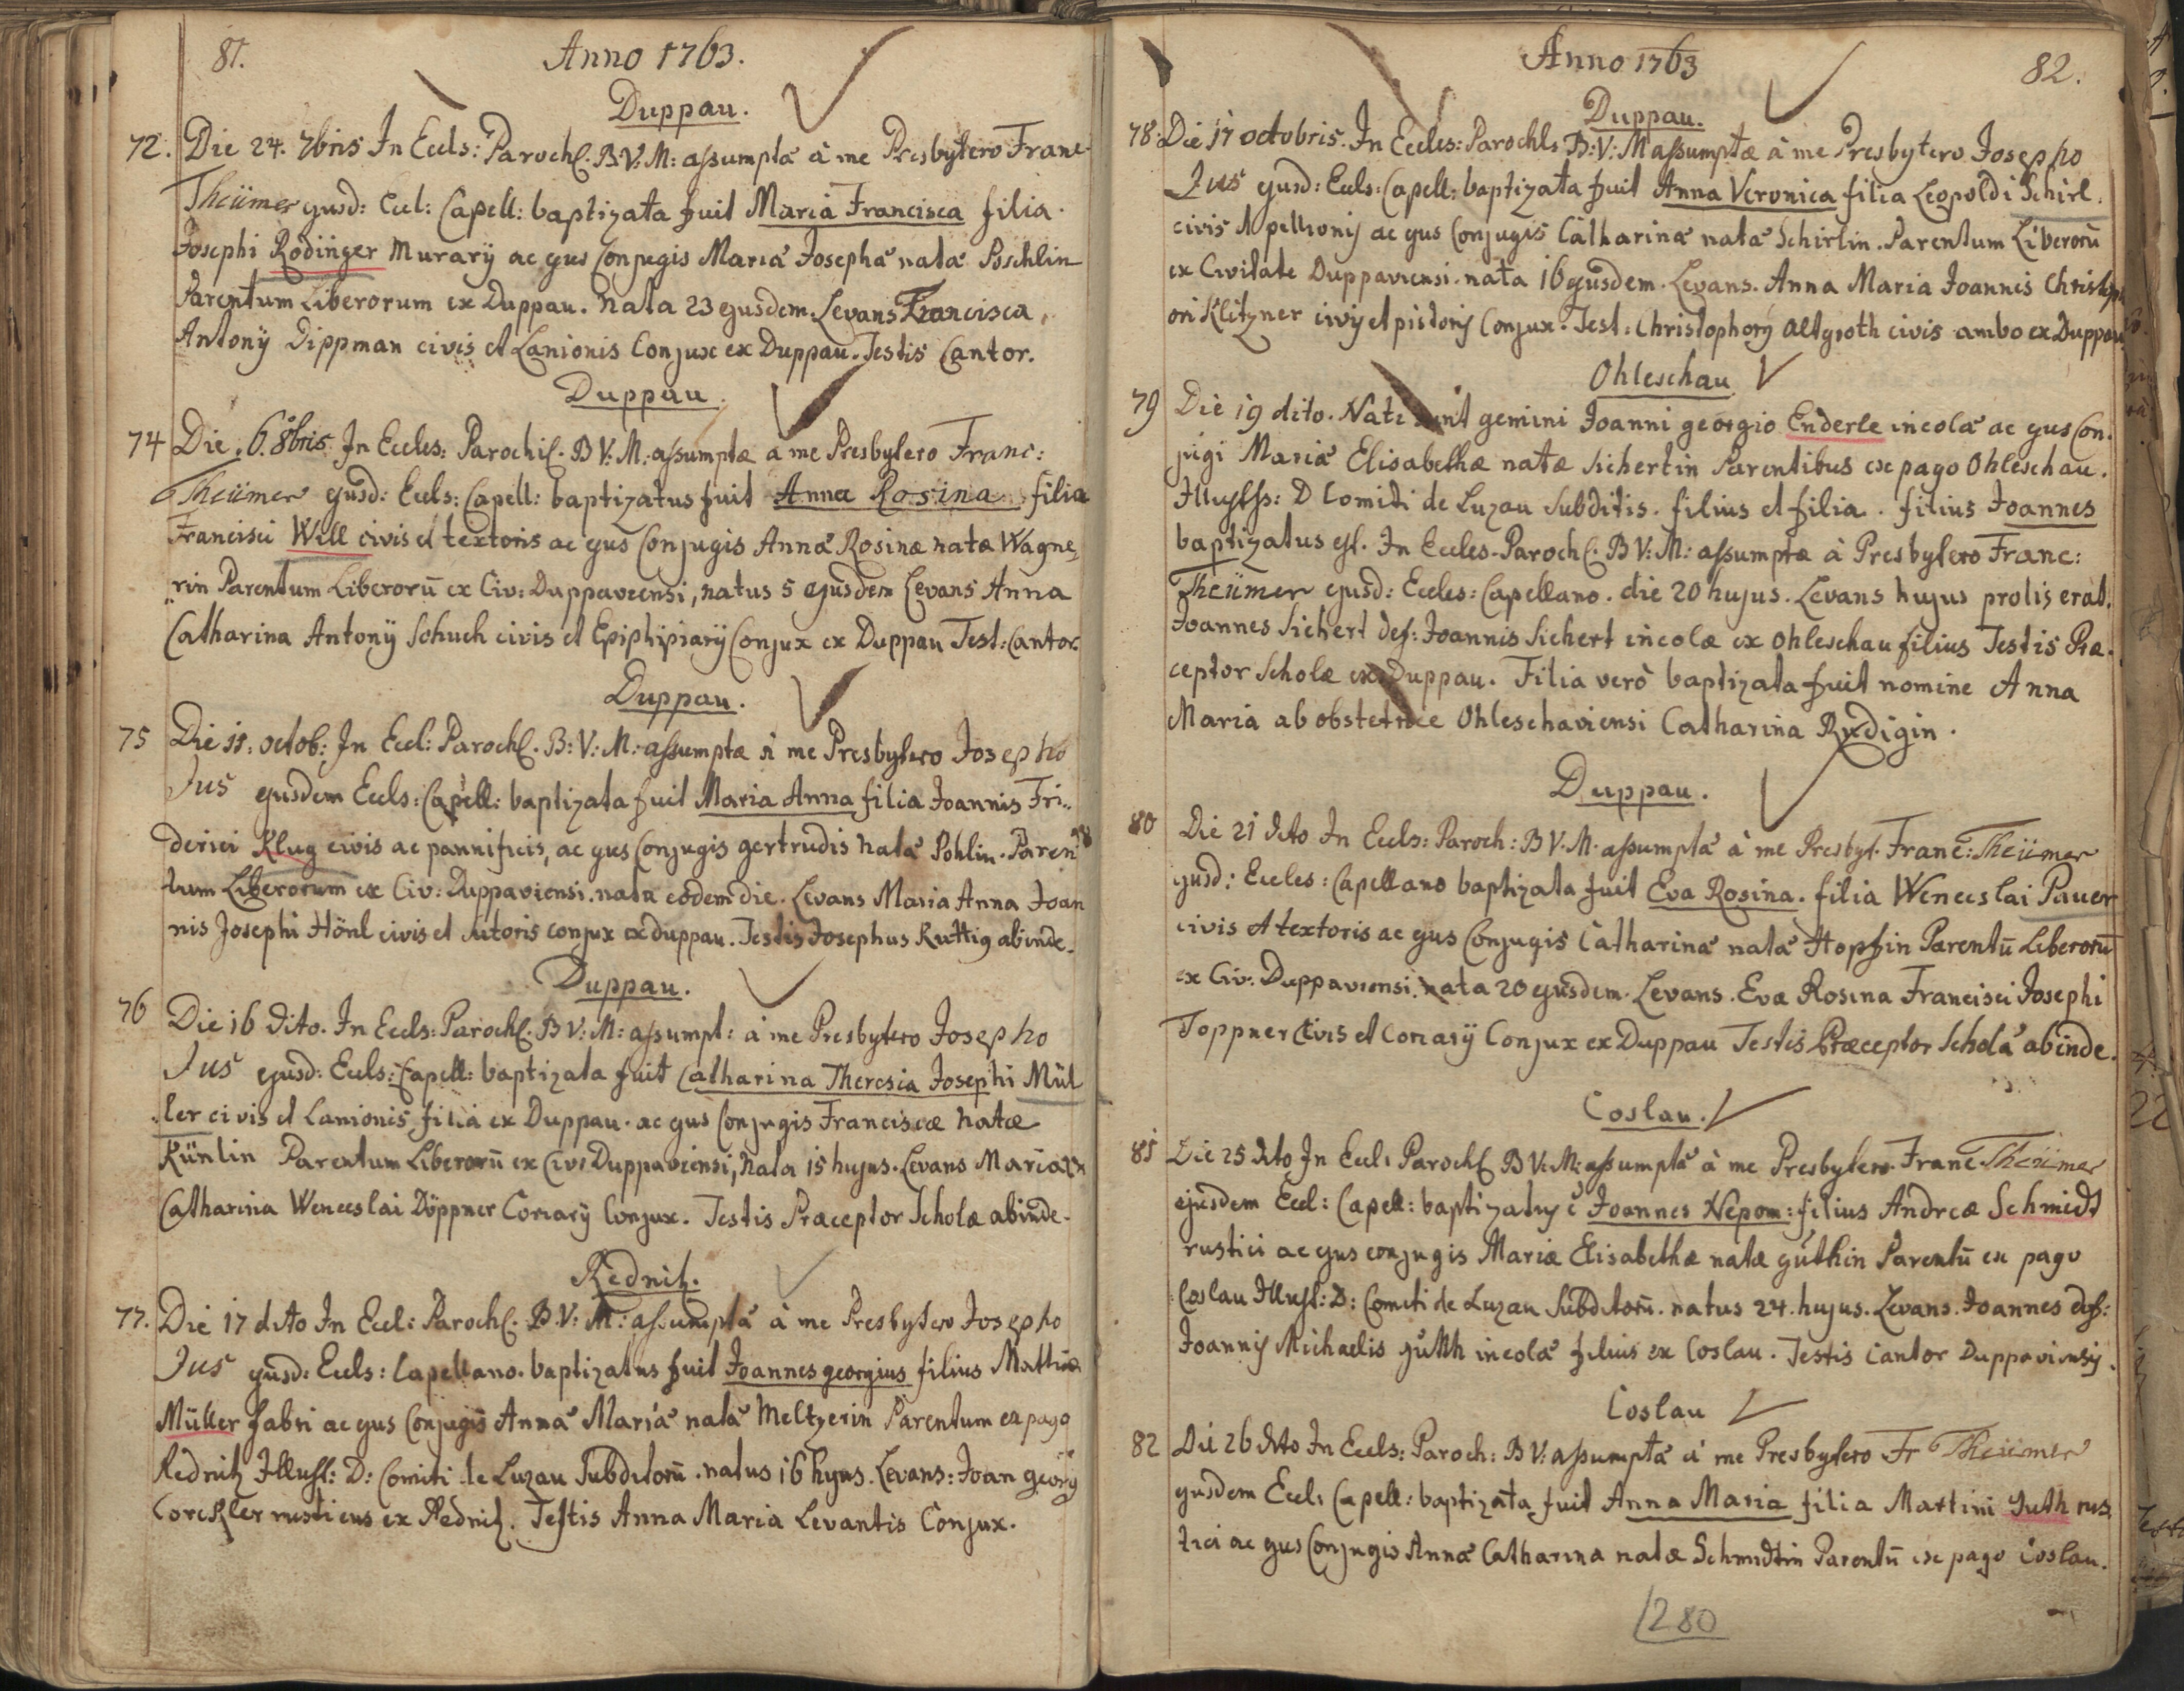 81.
Anno 1763.
Duppau.
72. Die 24. 7bris In Eccls: Parochl. B.V.M: assumptâ à me Presbytero Franc:
Theümer ejusd: Eccl: Capell: baptizata fuit Maria Francisca filia
Josephi Rödinger Murarÿ ac ejus Conjugis Mariâ Josephâ natâ Pöschlin
Parentum Liberorum ex Duppau. Nata 23 ejusdem. Levans Francisca,
Antonÿ Dippman civis et Lanionis Conjux ex Duppau. Testis Cantor.
Duppau.
74 Die 6. 8bris In Eccles: Parochil. B V: M: assumptæ a me Presbytero Franc:
Theümer ejusd: Eccls: Capell: baptizatus fuit Anna Rosina filia
Francisci Will civis et textoris ac ejus Conjugis Annâ Rosinæ natæ Wagne,
rin Parentum Liberorū ex Civ: Duppaviensi, natus 5 ejusdem Levans Anna
Catharina Antonÿ Schuch civis et Ephipiarÿ Conjux ex Duppau Test: Cantor.
Duppau.
75 Die 11. octob: In Eccl: Parochl. B: V: M: assumptæ à me Presbytero Josepho
Jus ejusdem Eccls: Capell: baptizata fuit Maria Anna filia Joannis Fri..
derici Klug civis ac pannificis, ac ejus Conjugis gertrudis natâ Pohlin. Paren
tum Liberorum ex Civ: Duppaviensi. nata eodem die. Levans Maria Anna Joan
nis Josephi Hönl civis et sutoris conjux ex duppau. Testis Josephus Ruttig abinde.
Duppau.
76 Die 16 dito. In Eccls: Parochl. B V: M: assumpt: à me Presbytero Josepho
Jus ejusd: Eccls: Capell: baptizata fuit Catharina Theresia Josephi Mül
ler civis et Lanionis filia ex Duppau. ac ejus Conjugis Franciscæ natæ
Künlin Parentum Liberorū ex Civ: Duppaviensi, nata 15 hujus. Levans Maria
Catharina Wenceslai Döppner Coriarÿ Conjux. Testis Præceptor Scholæ abinde.
Rednitz.
77. Die 17 dito In Eccl: Parochl. B. V: M: assumptâ à me Presbytero Josepho
Jus ejusd: Eccls: Capellano. baptizatus fuit Joannes georgius filius Mattiæ
Müller fabri ac ejus Conjugis Annâ Mariâ natâ Meltzerin Parentum ex pago
Rednitz Illust: D: Comiti de Luzau Subditorū. natus 16 hujus. Levans: Joan georg
Corckler rusticus ex Rednitz. Testis Anna Maria Levantis Conjux.
Anno 1763
82.
Duppau.
78. Die 17 octobris. In Eccles: Parochl. B: V: M assumptæ à me Presbytero Josepho
Jus ejusd: Eccls: Capell: baptizata fuit Anna Veronica filia Leopoldi Schirl.
civis et pellionis ac ejus Conjugis Catharinâ natâ Schirlin. Parentum Liberorū
ex Civitate Duppaviensi. nata 16 ejusdem. Levans. Anna Maria Joannis Christoph
ori Klitzner civis et pistoris Conjux. Test: Christophorus Altgroth civis ambo ex Duppau.
Ohleschau
79 Die 19 dito. Nati sunt gemini Joanni georgio Enderle incolâ ac ejus Con.
jugi Mariâ Elisabethæ natæ Sichertin Parentibus ex pago Ohleschau.
Illustss: D Comiti de Luzau Subditis. filius et filia. filius Joannes
baptizatus est. In Eccles. Parochl. B V: M: assumptæ à Presbytero Franc:
Theümer ejusd: Eccles: Capellano. die 20 hujus. Levans hujus prolis erat.
Joannes Sichert def: Joannis Sichert incolæ ex Ohleschau filius Testis Præ.
ceptor Scholæ ex Duppau. Filia verò baptizata fuit nomine Anna
Maria ab obstetrice Ohleschaviensi Catharina Rudigin.
Duppau.
80 Die 21 dito In Eccls: Paroch: B V. M. assumptâ à me Presbyt. Franc: Theümer
ejusd: Eccles: Capellano baptizata fuit Eva Rosina. filia Wenceslai Pauer
civis et textoris ac ejus Conjugis Catharinâ natâ Hopfin Parentū Liberorū
ex Civ: Duppaviensi. nata 20 ejusdem. Levans. Eva Rosina Francisci Josephi
Toppner Civis et Coriarÿ Conjux ex Duppau Testis Præceptor Scholâ abinde.
Coslau.
81 Die 25 dito In Eccl: Parochl B V: M: assumptâ à me Presbytero Franc Theümer
ejusdem Eccl: Capell: baptizatus ē Joannes Nepom: filius Andreæ Schmidt
rustici ac ejus conjugis Mariæ Elisabethæ natæ güthin Parentū ex pago
Coslau Illust: D: Comiti de Luzau Subditorū. natus 24. hujus. Levans. Joannes def:
Joannis Michaelis güth incolâ filius ex Coslau. Testis Cantor Duppaviensis.
Coslau
82 Die 26 dito In Eccls: Paroch: B V: assumptâ à me Presbytero Fr Theümer
ejusdem Eccl: Capell: baptizata fuit Anna Maria filia Martini Guth rus
tici ac ejus Conjugis Annâ Catharina natæ Schmidtin Parentū ex pago Coslau.
280